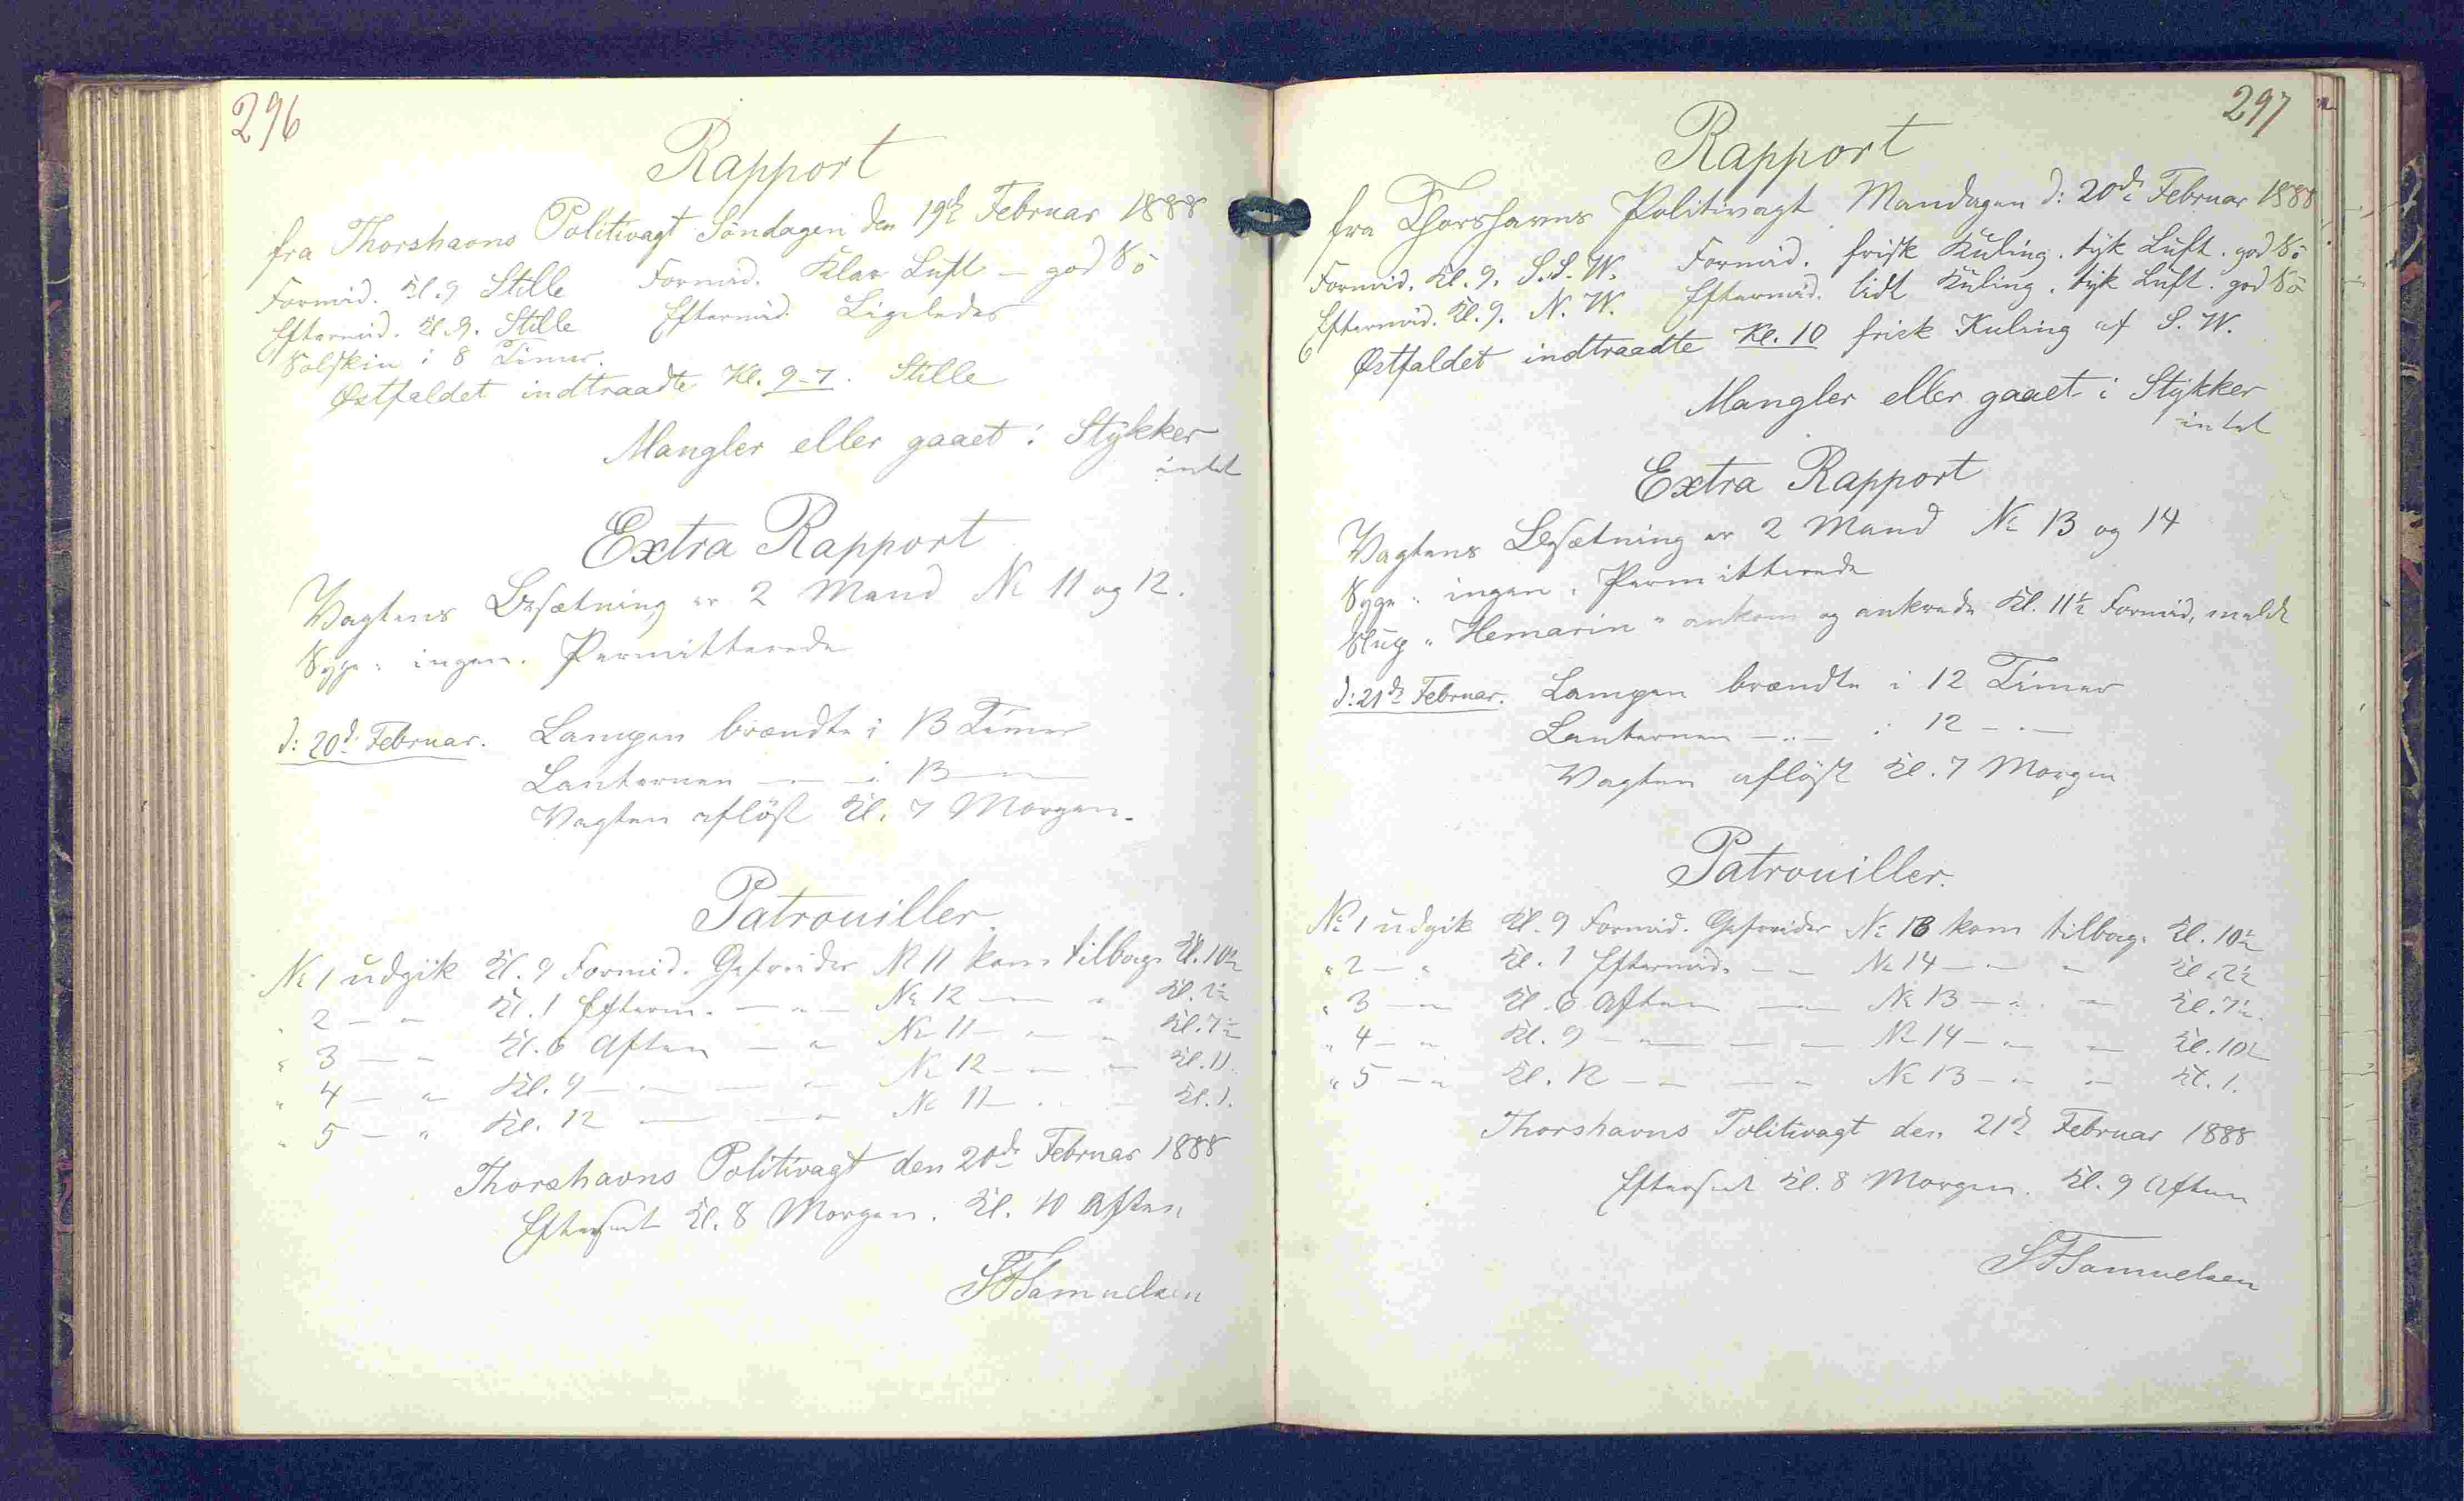 296
Rapport
fra Thorshavns Politivagt Söndagen den 19de Februar 1888
Formid. Kl. 9 Stille Formid. Klar Luft – god Sö
Eftermid. Kl. 9. Stille Eftermid. Ligeledes
Solskin i 8 Timer.
Østfaldet indtraadte Kl. 9-7. Stille
Mangler eller gaaet i Stykker
intet
Extra Rapport
Vagtens Besætning er 2 Mand No 11 og 12.
Syge: ingen. Permitterede
d: 20de Februar. Lampen brændte i 13 Timer
Lanternen — " — i 13 — " —
Vagten aflöst Kl. 7 Morgen.
Patrouiller
No 1 udgik Kl. 9 Formid. Gefreider No 11 kom tilbage Kl. 10½
" 2 — " Kl. 1 Efterm. — " — No 12 — " — " Kl. 2½
" 3 — " Kl. 6 Aften — " No 11 — " — " Kl. 7½
" 4 — " Kl. 9 — " — — " No 12 — " — " Kl. 11.
" 5 — " Kl. 12 — " — — " No 11 — " — " Kl. 1.
Thorshavns Politivagt den 20de Februar 1888
Efterset Kl. 8 Morgen. Kl. 10 Aften
SFSamuelsen
297
Rapport
fra Thorshavns Politivagt Mandagen d: 20de Februar 1888
Formid. Kl. 9. S.S.W. Formid. frisk Kuling. tyk Luft. god Sö
Eftermid. Kl. 9. N.W. Eftermid. lidt Kuling. tyk Luft. god Sö
Østfaldet indtraadte Kl. 10 frisk Kuling af S.W.
Mangler eller gaaet i Stykker
intet
Extra Rapport
Vagtens Besætning er 2 Mand No 13 og 14
Syge: ingen. Permitterede
Slup "Hemarin" ankom og ankrede Kl. 11½ Formid, meldt
d: 21de Februar. Lampen brændte i 12 Timer
Lanternen — " — i 12 — " —
Vagten aflöst Kl. 7 Morgen
Patrouiller.
No 1 udgik Kl. 9 Formid. Gefreider No 13 kom tilbage Kl. 10½
" 2 — " Kl. 1 Eftermid. — — No 14 — " — Kl. 2½
" 3 — " Kl. 6 Aften — " No 13 — " — Kl. 7½.
" 4 — " Kl. 9 — " — — No 14 — " — Kl. 10½
" 5 — " Kl. 12 — " — " No 13 — " — Kl. 1.
Thorshavns Politivagt den 21de Februar 1888
Efterset Kl. 8 Morgen. Kl. 9 Aften
SFSamuelsen